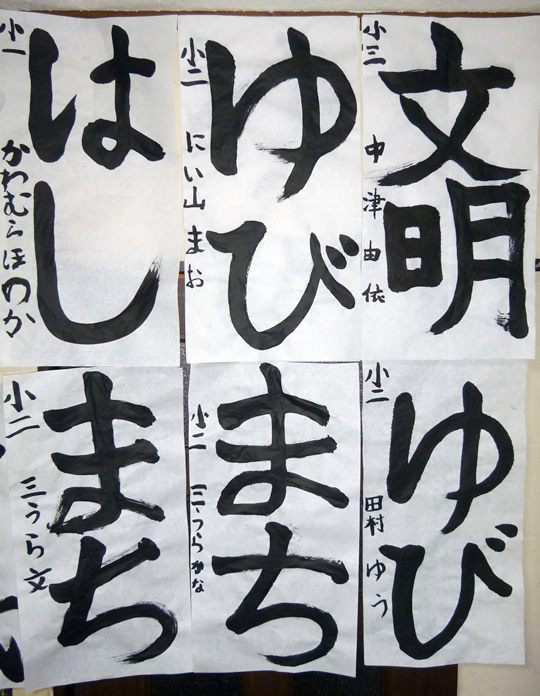 はし
小一
かわむらほのか
ゆび
小二
にい山まお
文明
小三
中津由依
まち
小二
三うら文
まち
小二
三うらかな
ゆび
小二
田村ゆう